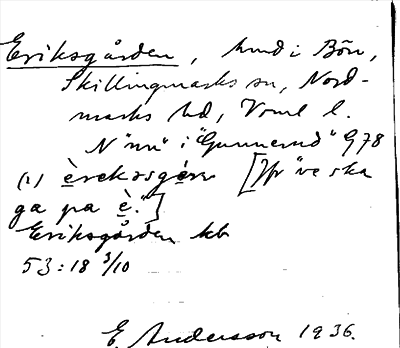 Eriksgården, hmd i Bön,
Skillingmarks sn, Nord-
marks hd, Vrml l.
N "nu" i "Gunnerud" G78
(1) èrekosgèrn [Jfr "ve ska
ga pa è."]
Eriksgården kb
53:18 3/10
E. Andersson 1936.